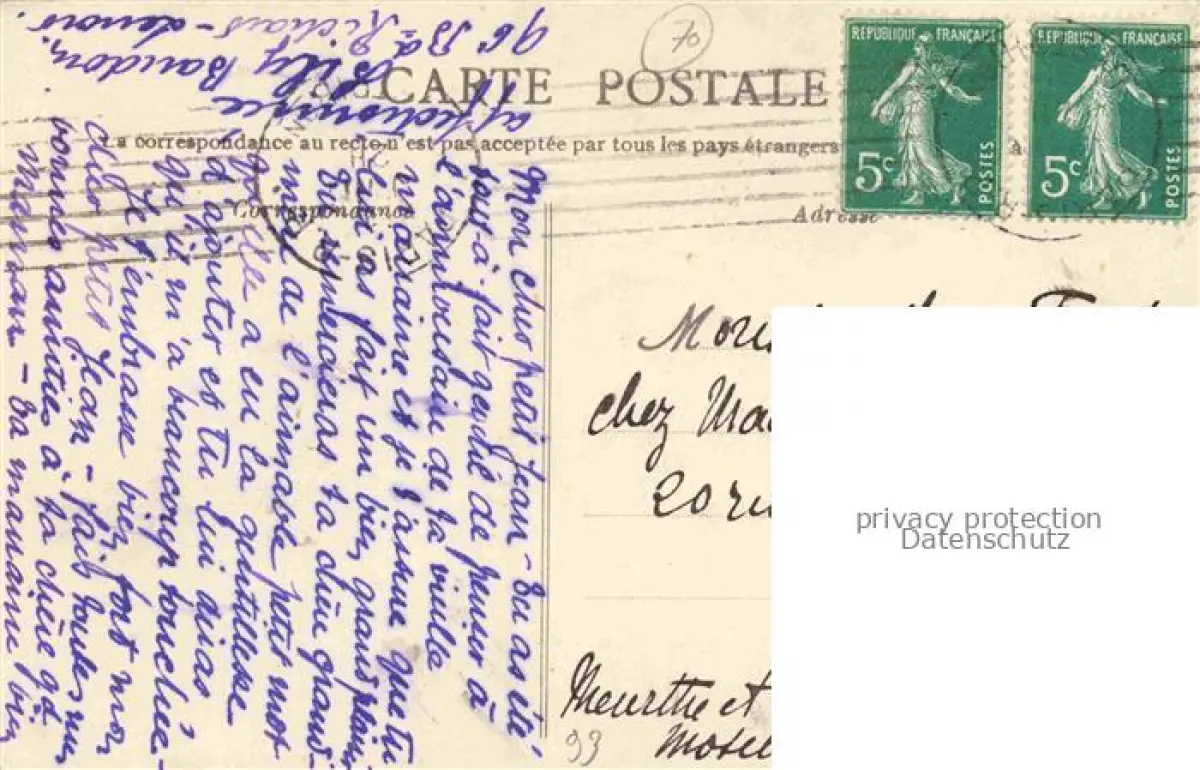 70
CARTE POSTALE
RÉPUBLIQUE FRANÇAISE
5c
POSTES
RÉPUBLIQUE FRANÇAISE
5c
POSTES
La correspondance au recto n'est pas acceptée par tous les pays étrangers
Correspondance
Adresse
Mon cher petit Jean – tu as été
tout-à-fait gentil de penser à
l'anniversaire de ta vieille
marraine et je t'assure que tu
lui as fait un bien grand plaisir
Tu remercieras ta chère grand-
mère de l'aimable petit mot
qu'elle a eu la gentillesse
d'ajouter et tu lui diras
qu'il m'a beaucoup touchée –
Je t'embrasse bien fort mon
cher petit Jean – fais toutes mes
bonnes amitiés à ta chère gd
maman – Ta marraine bien
affectionnée
Baudon
96 Bd
Richard-Lenoir
chez
20
Meurthe et
93
privacy protection
Datenschutz